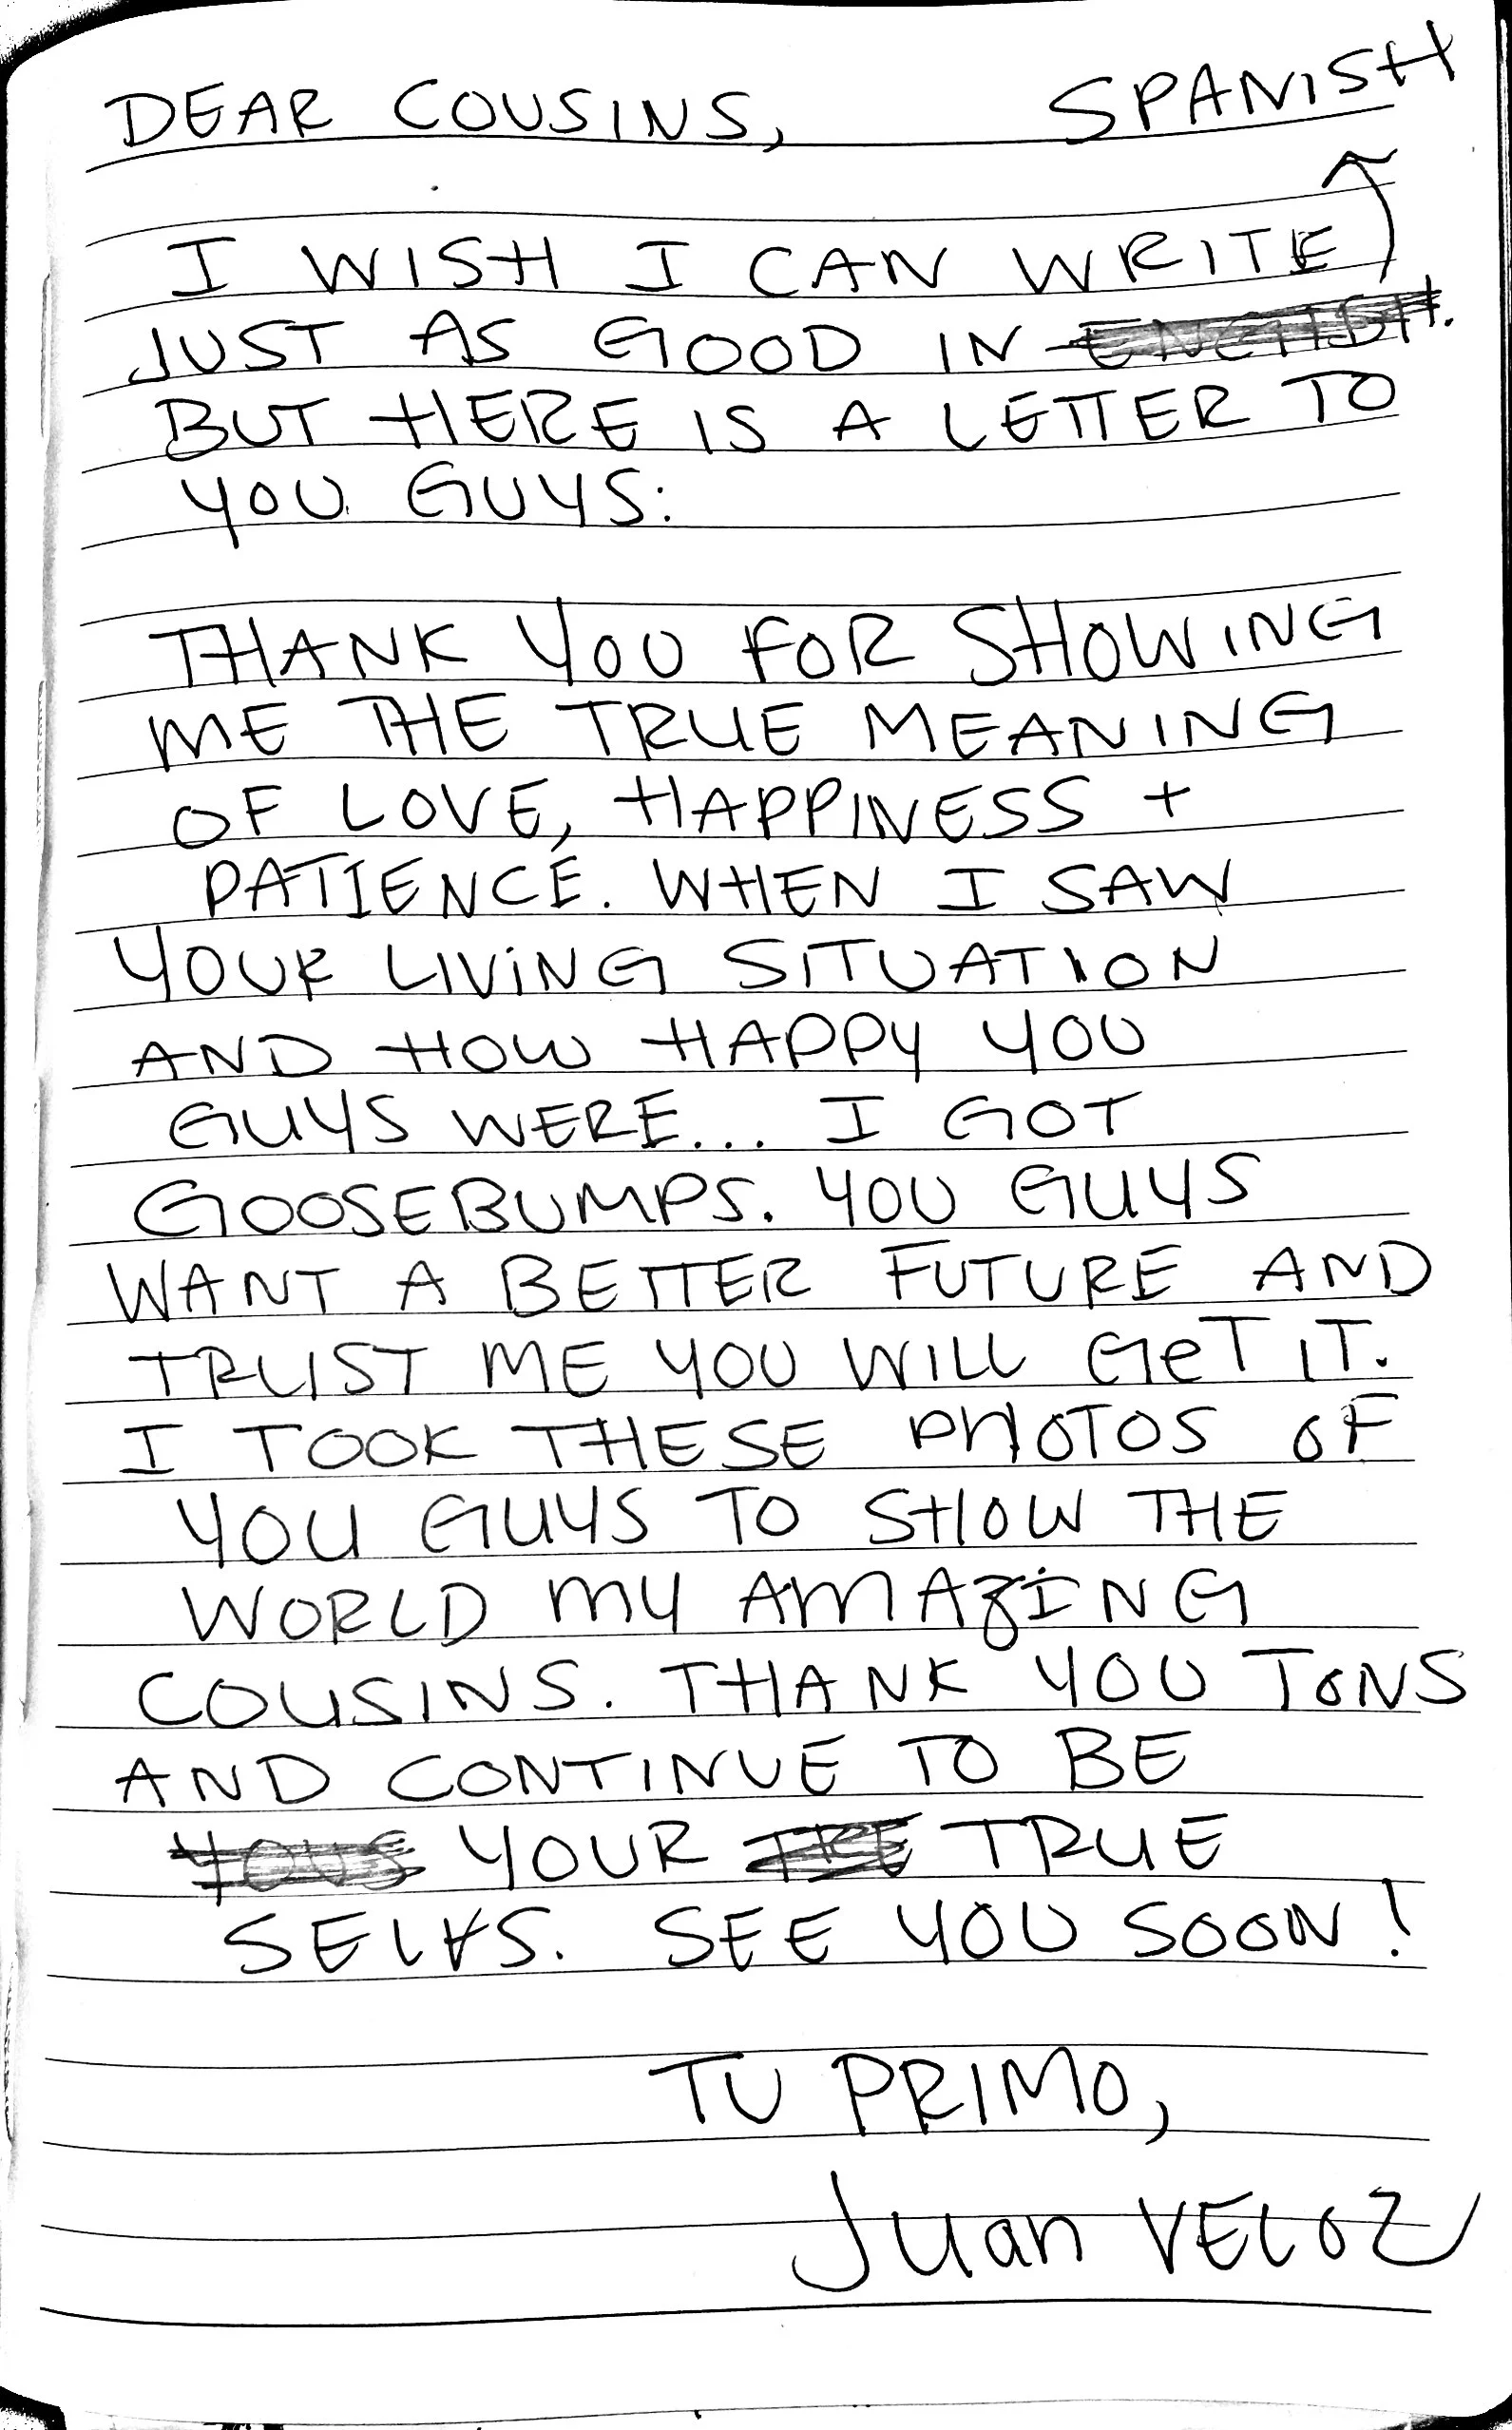 DEAR COUSINS, SPANISH
I WISH I CAN WRITE
JUST AS GOOD IN ENGLISH.
BUT HERE IS A LETTER TO
YOU GUYS:
THANK YOU FOR SHOWING
ME THE TRUE MEANING
OF LOVE, HAPPINESS +
PATIENCE. WHEN I SAW
YOUR LIVING SITUATION
AND HOW HAPPY YOU
GUYS WERE... I GOT
GOOSEBUMPS. YOU GUYS
WANT A BETTER FUTURE AND
TRUST ME YOU WILL GET IT.
I TOOK THESE PHOTOS OF
YOU GUYS TO SHOW THE
WORLD MY AMAZING
COUSINS. THANK YOU TONS
AND CONTINUE TO BE
YOUR TRUE
SELVS. SEE YOU SOON!
TU PRIMO,
Juan VELOZ